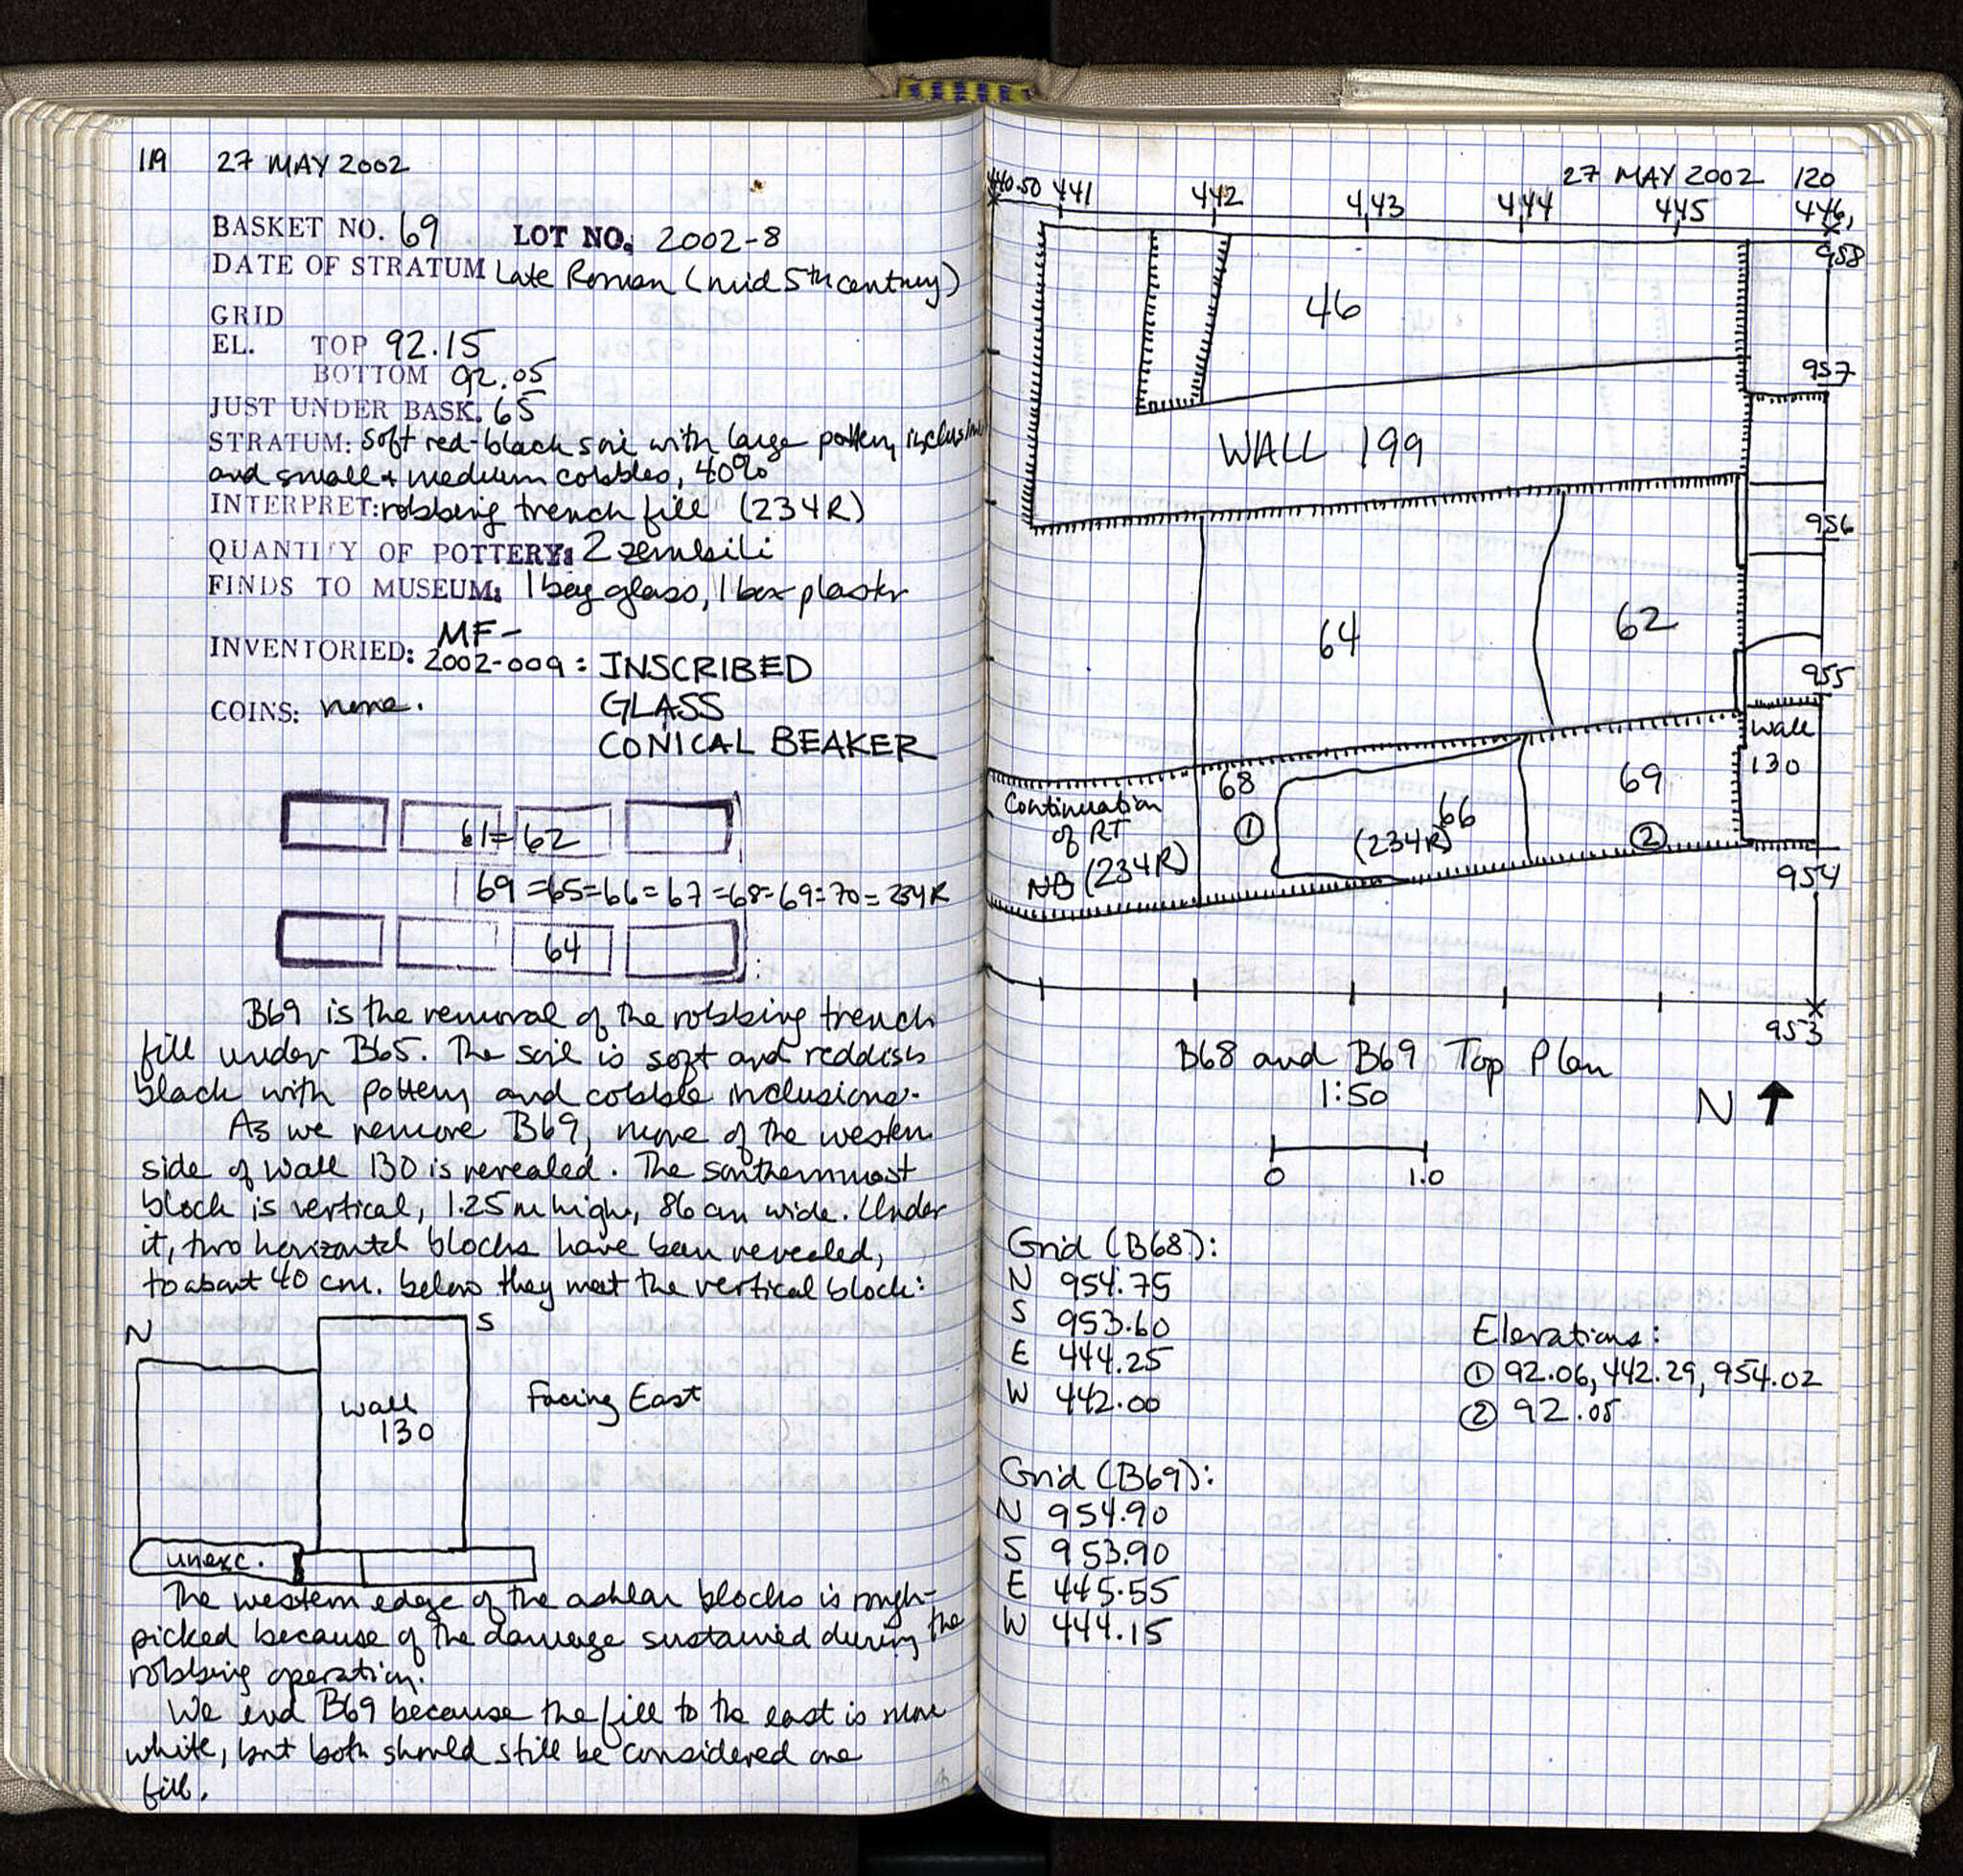 119 27 MAY 2002
BASKET NO. 69 LOT NO. 2002-8
DATE OF STRATUM Late Roman (mid 5th century)
GRID
EL. TOP 92.15
BOTTOM 92.05
JUST UNDER BASK. 65
STRATUM: soft red-black soil with large pottery inclusions
and small + medium cobbles, 40%
INTERPRET: robbing trench fill (234R)
QUANTITY OF POTTERY: 2 zembili
FINDS TO MUSEUM: 1 bag glass, 1 box plaster
MF-
INVENTORIED: 2002-009: INSCRIBED
GLASS
COINS: none.
CONICAL BEAKER
61=62
69=65=66=67=68=69=70=234R
64
B69 is the removal of the robbing trench
fill under B65. The soil is soft and reddish
black with pottery and cobble inclusions.
As we remove B69, more of the western
side of Wall 130 is revealed. The southernmost
block is vertical, 1.25 m high, 86 cm wide. Under
it, two horizontal blocks have been revealed,
to about 40 cm. below they meet the vertical block:
N S
Wall
130
Facing East
unexc.
The western edge of the ashlar blocks is rough-
picked because of the damage sustained during the
robbing operation.
We end B69 because the fill to the east is more
white, but both should still be considered one
fill.
27 MAY 2002 120
440.50 441 442 443 444 445 446,
958
46
957
WALL 199
956
64
62
955
Wall
130
68
69
66
Continuation
of RT
(234R)
NB (234R)
1
2
954
953
B68 and B69 Top Plan
1:50
N ↑
0 1.0
Grid (B68):
N 954.75
S 953.60
E 444.25
W 442.00
Elevations:
① 92.06, 442.29, 954.02
② 92.05
Grid (B69):
N 954.90
S 953.90
E 445.55
W 444.15